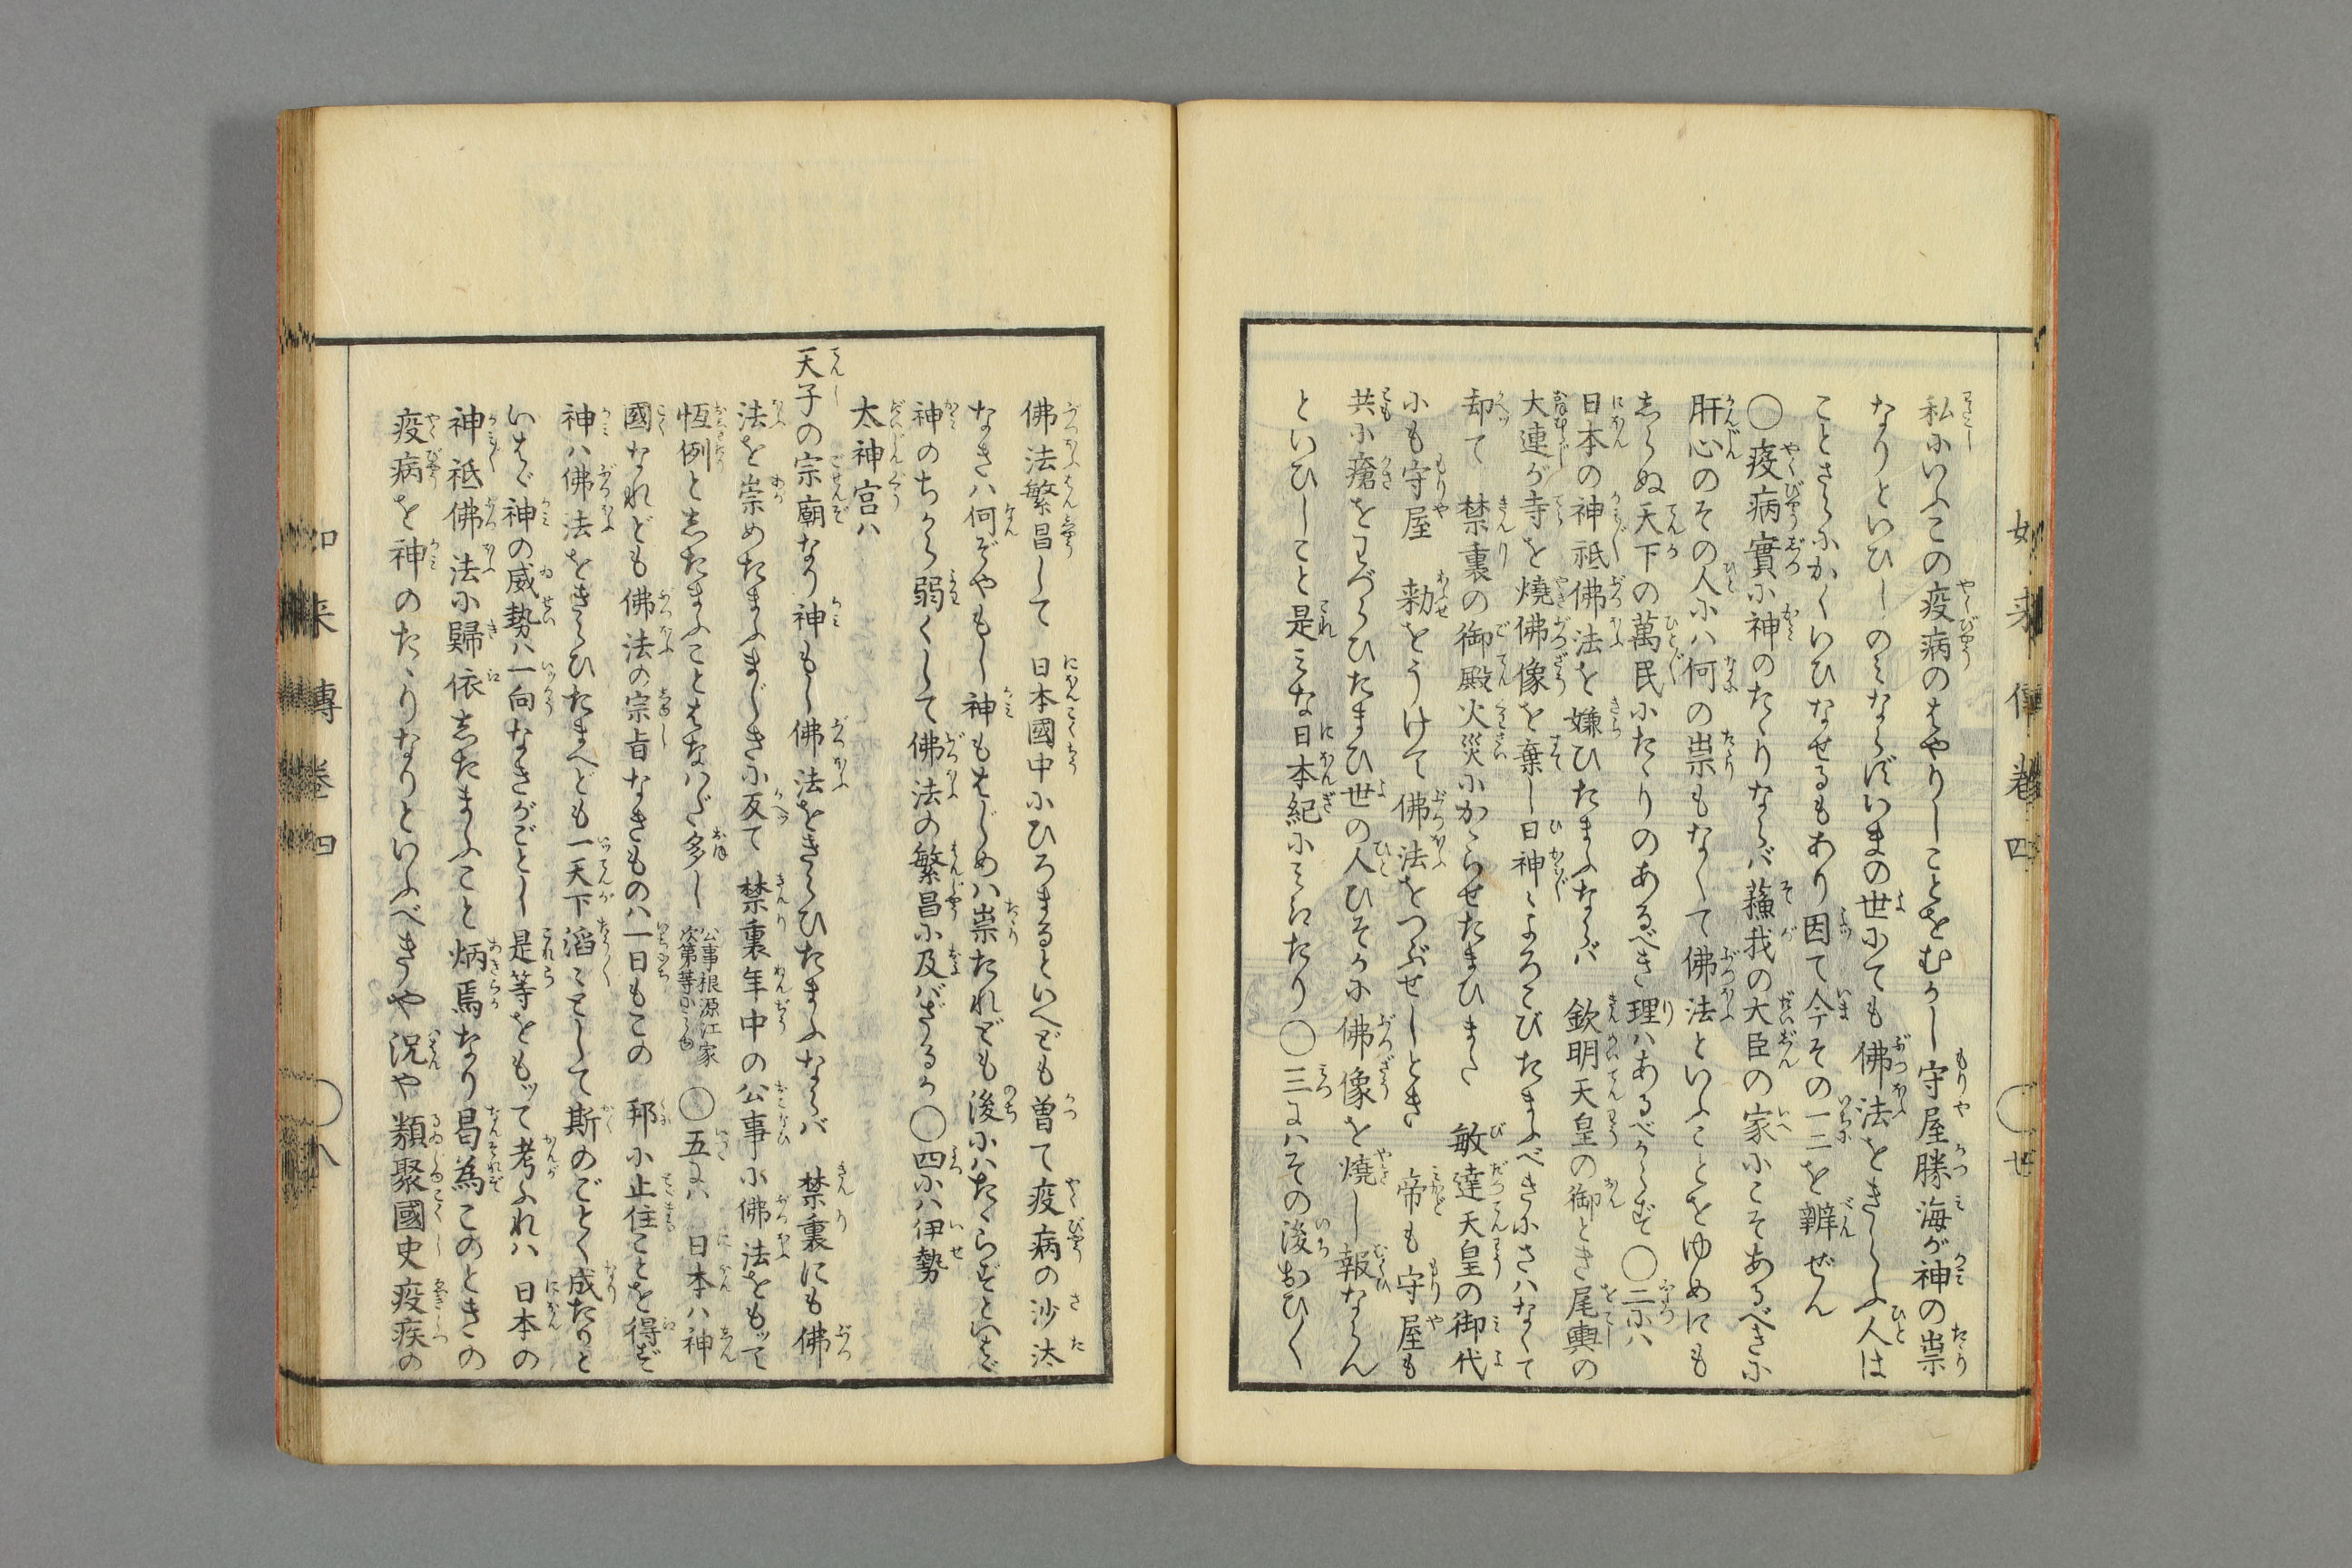 私にいふこの疫病のはやりしことをむかし守屋勝海が神の祟
なりといひしのみならずいまの世にても佛法をきらふ人は
ことさらにかくいひなせるもあり因て今その一二を辨ぜん
○疫病實に神のたゝりならバ蘓我の大臣の家にこそあるべきに
肝心のその人にハ何の祟もなくて佛法といふことをゆめにも
しらぬ天下の萬民にたゝりのあるべき理ハあるべからず○二にハ
日本の神祇佛法を嫌ひたまふならバ 欽明天皇の御とき尾輿の
大連が寺を燒佛像を棄し日神〻よろこびたまふべきにさハなくて
却て 禁裏の御殿火災にかゝらせたまひまた 敏達天皇の御代
にも守屋 勅をうけて佛法をつぶせしとき 帝も守屋も
共に瘡をわづらひたまひ世の人ひそかに佛像を燒し報ならん
といひしこと是みな日本紀にみえたり○三にハその後おひ〳〵
佛法繁昌して 日本國中にひろまるといへども曽て疫病の沙汰
なきハ何ぞやもし神もはじめハ祟たれども後にハたゝらずといはゞ
神のちから弱くして佛法の繁昌に及バざるか○四にハ伊勢
太神宮ハ
天子の宗廟なり神もし佛法をきらひたまふならバ 禁裏にも佛
法を崇めたまふまじきに反て 禁裏年中の公事に佛法をもッて
恆例としたまふことはなハだ多し 公事根源江家次第等にみゆ ○五にハ 日本ハ神
國なれども佛法の宗旨なきものハ一日もこの 邦に止住ことを得ず
神ハ佛法をきらひたまへども一天下滔〻として斯のごとく成たりと
いはゞ神の威勢ハ一向なきがごとし是等をもッて考ふれハ 日本の
神祇佛法に歸依したまふこと炳焉なり曷為このときの
疫病を神のたゝりなりといふべきうや況や類聚國史疫疾の
如来傳巻四
如来傳巻四